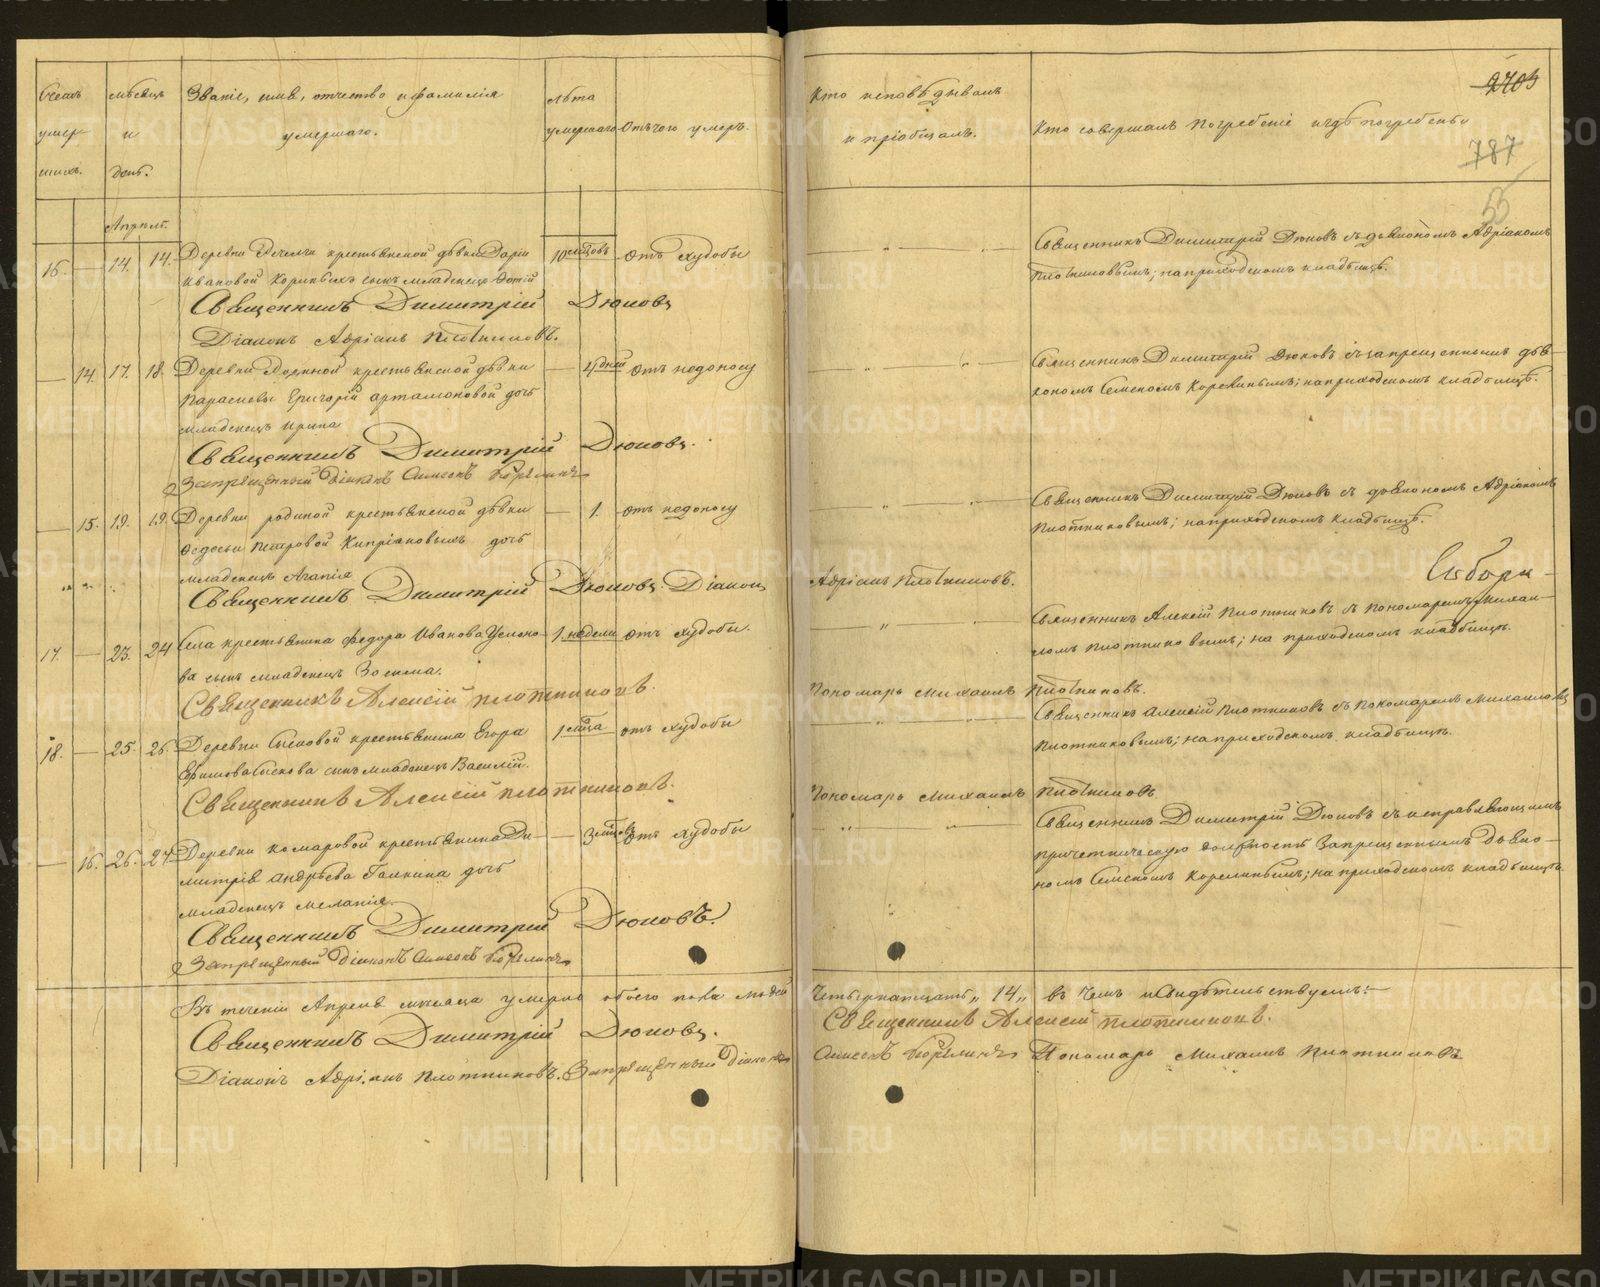 Счетъ умершихъ.
мѣсяцъ и день.
Званіе, имя, отчество и фамилія умершаго.
лѣта умершаго
отъ чего умеръ.
Кто исповѣдывалъ и пріобщалъ.
Кто совершалъ погребеніе и гдѣ погребены
2703
787
55
Апрѣль
16. — 14. 14. Деревни крестьянской дѣвки Даріи 10 мѣсцовъ отъ худобы
Ивановой сынъ младенецъ Фотій
Священникъ Димитрій Дюковъ
Діаконъ Адріанъ Плотниковъ.
Священникъ Димитрій Дюковъ съ діакономъ Адріаномъ
Плотниковымъ; на приходскомъ кладбищѣ.
— 14. 17. 18. Деревни крестьянской дѣвки — 4 дней отъ недоносу
Параскевы Григорій Артамоновой дочь
младенецъ Ирина
Священникъ Димитрій Дюковъ.
Запрещенный Діаконъ Симеонъ Корелинъ
Священникъ Димитрій Дюковъ съ запрещеннымъ діа-
кономъ Симеономъ Корелинымъ; на приходскомъ кладбищѣ.
— 15. 19. 19. Деревни Родиной крестьянской дѣвки — 1. отъ недоносу
Ѳедосьи Петровой Кипріановыхъ дочь
младенецъ Агапія
Священникъ Димитрій Дюковъ. Діаконъ
Адріанъ Плотниковъ.
Священникъ Димитрій Дюковъ съ діакономъ Адріаномъ
Плотниковымъ; на приходскомъ кладбищѣ.
17. — 23. 24 Села крестьянина Федора Иванова 1 недели отъ худобы
ва сынъ младенецъ Зосима.
Священникъ Алексій Плотниковъ.
Пономарь Михаилъ Плотниковъ.
Священникъ Алексій Плотниковъ съ пономаремъ Михаи-
ломъ Плотниковымъ; на приходскомъ кладбищѣ.
18. — 25. 26. Деревни Сысковой крестьянина Егора 1 мѣсца отъ худобы
Ефимова Сыскова сынъ младенецъ Василій.
Священникъ Алексій Плотниковъ.
Пономарь Михаилъ Плотниковъ
Священникъ Алексій Плотниковъ съ пономаремъ Михаиломъ
Плотниковымъ; на приходскомъ кладбищѣ.
— 16. 26. 27. Деревни Комаровой крестьянина Ди- — 3 мѣсцовъ отъ худобы
митрія Андрѣева Галкина дочь
младенецъ Меланія.
Священникъ Димитрій Дюковъ.
Запрещенный Діаконъ Симеонъ Корелинъ
Священникъ Димитрій Дюковъ съ исправляющимъ
причетническую должность Запрещеннымъ Діако-
номъ Симеономъ Корелинымъ; на приходскомъ кладбищѣ
Въ теченіи Апреля месяца умерло обоего пола людей Четырнатцать „14„ въ чемъ и свидѣтельствуемъ:—
Священникъ Димитрій Дюковъ. Священникъ Алексій Плотниковъ.
Діаконъ Адріанъ Плотниковъ. Запрещенный Діаконъ Симеонъ Корелинъ Пономарь Михаилъ Плотниковъ
METRIKI.GASO-URAL.RU